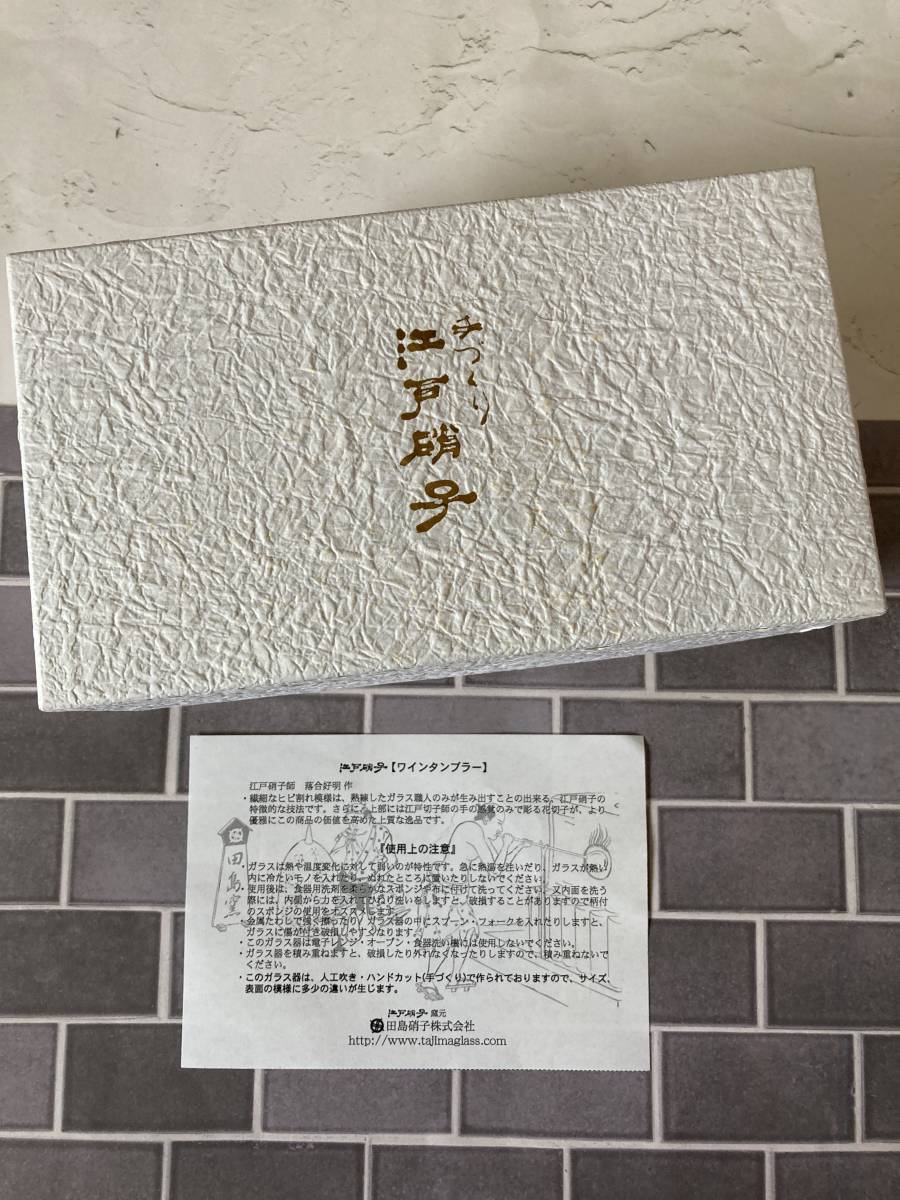 手づくり
江戸硝子
江戸硝子【ワインタンブラー】
江戸硝子師 落合好明 作
・繊細なヒビ割れ模様は、熟練したガラス職人のみが生み出すことの出来る、江戸硝子の
特徴的な技法です。さらにろ上部には江戸切子師の手の感覚のみで彫る花切子が、より
優雅にこの商品の価値を高めた上質な逸品です。
『使用上の注意』
・ガラスは熱や温度変化に対して弱いのが特性です。急に熱湯を注いだり、ガラスが熱い
内に冷たいモノを入れたり、ぬれたところに置いたりしないでください。
・使用後は、食器用洗剤を柔らかなスポンジや布に付けて洗ってください。又内面を洗う
際には、内側から力を入れてひねり洗いをしますと、破損することがありますので柄付
のスポンジの使用をオススメします。
・金属たわしで強く擦ったり、ガラス器の中にスプーン・フォークを入れたりしますと、
ガラスに傷が付き破損しやすくなります。
・このガラス器は電子レンジ・オーブン・食器洗い機には使用しないでください。
・ガラス器を積み重ねますと、破損したり外れなくなったりしますので、積み重ねないで
ください。
・このガラス器は、人工吹き・ハンドカット(手づくり)で作られておりますので、サイズ、
表面の模様に多少の違いが生じます。
田島窯
江戸硝子 窯元
田島硝子株式会社
http://www.tajimaglass.com